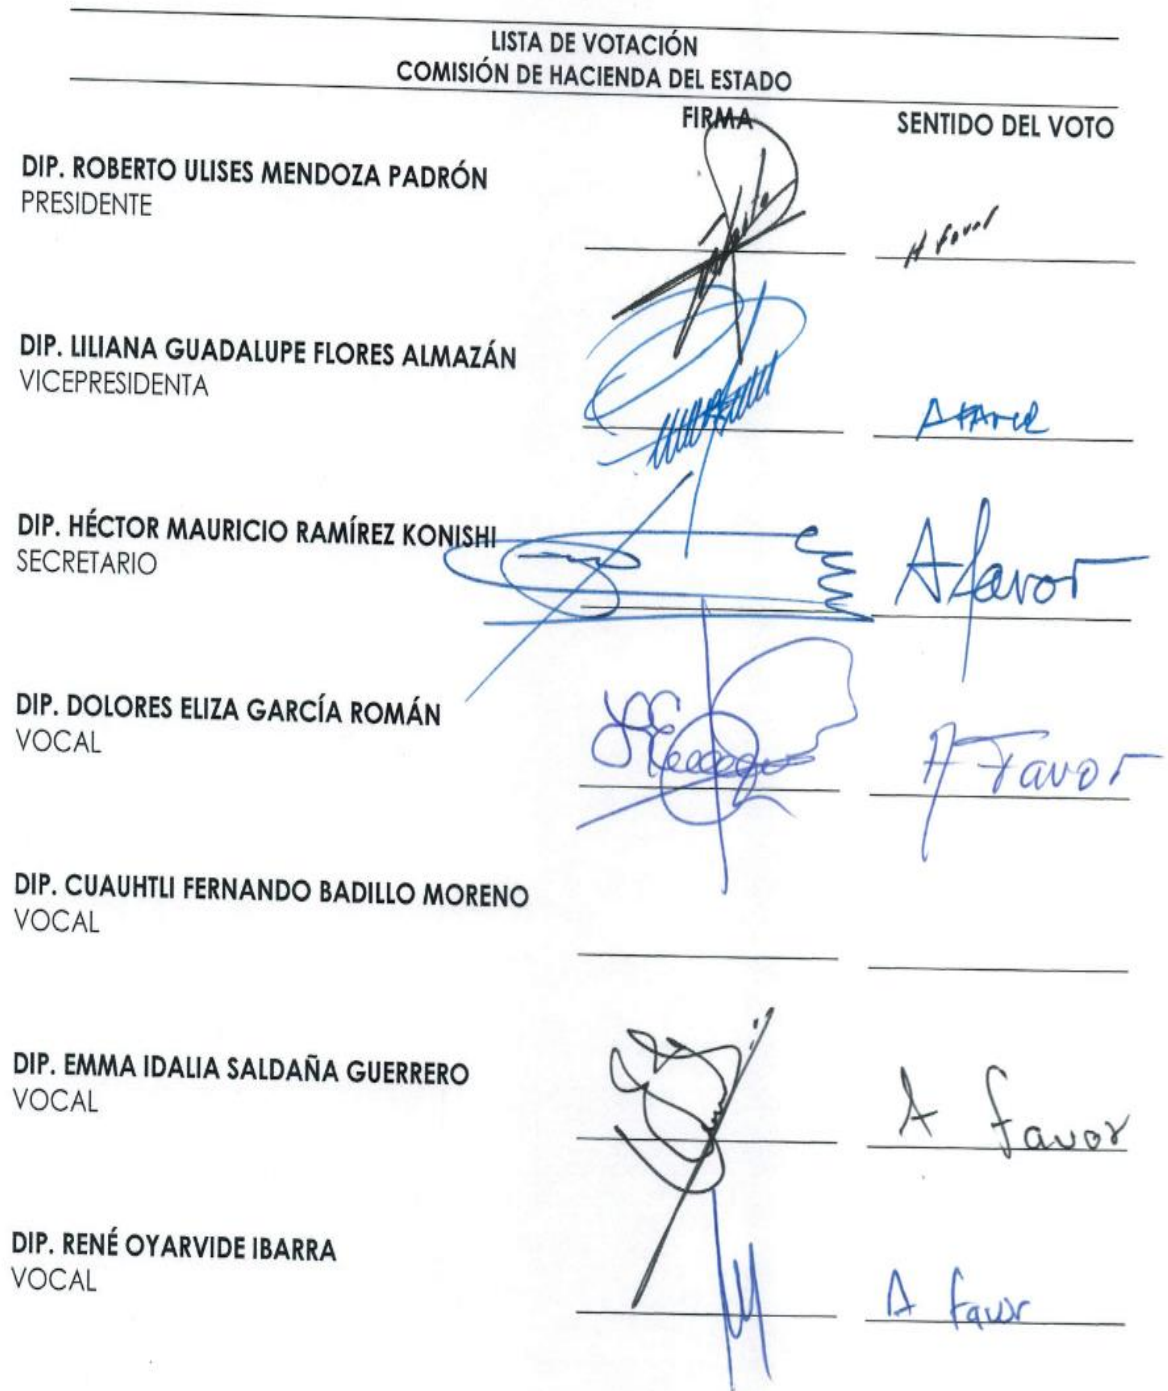 LISTA DE VOTACIÓN
COMISIÓN DE HACIENDA DEL ESTADO
FIRMA SENTIDO DEL VOTO
DIP. ROBERTO ULISES MENDOZA PADRÓN
PRESIDENTE
A favor
DIP. LILIANA GUADALUPE FLORES ALMAZÁN
VICEPRESIDENTA
A FAVOR
DIP. HÉCTOR MAURICIO RAMÍREZ KONISHI
SECRETARIO
A favor
DIP. DOLORES ELIZA GARCÍA ROMÁN
VOCAL
A Favor
DIP. CUAUHTLI FERNANDO BADILLO MORENO
VOCAL
DIP. EMMA IDALIA SALDAÑA GUERRERO
VOCAL
A favor
DIP. RENÉ OYARVIDE IBARRA
VOCAL
A favor